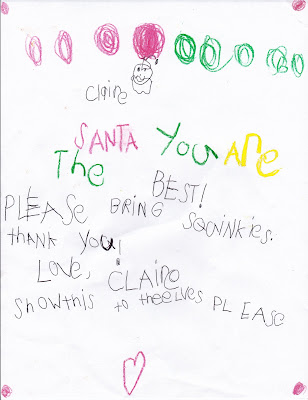 Claire
SANTA You ARe
The BEST!
PLEASe BRING SQWINKIES.
thANK You!
LOVE, CLAIRe
Show this to the elves PLEASe